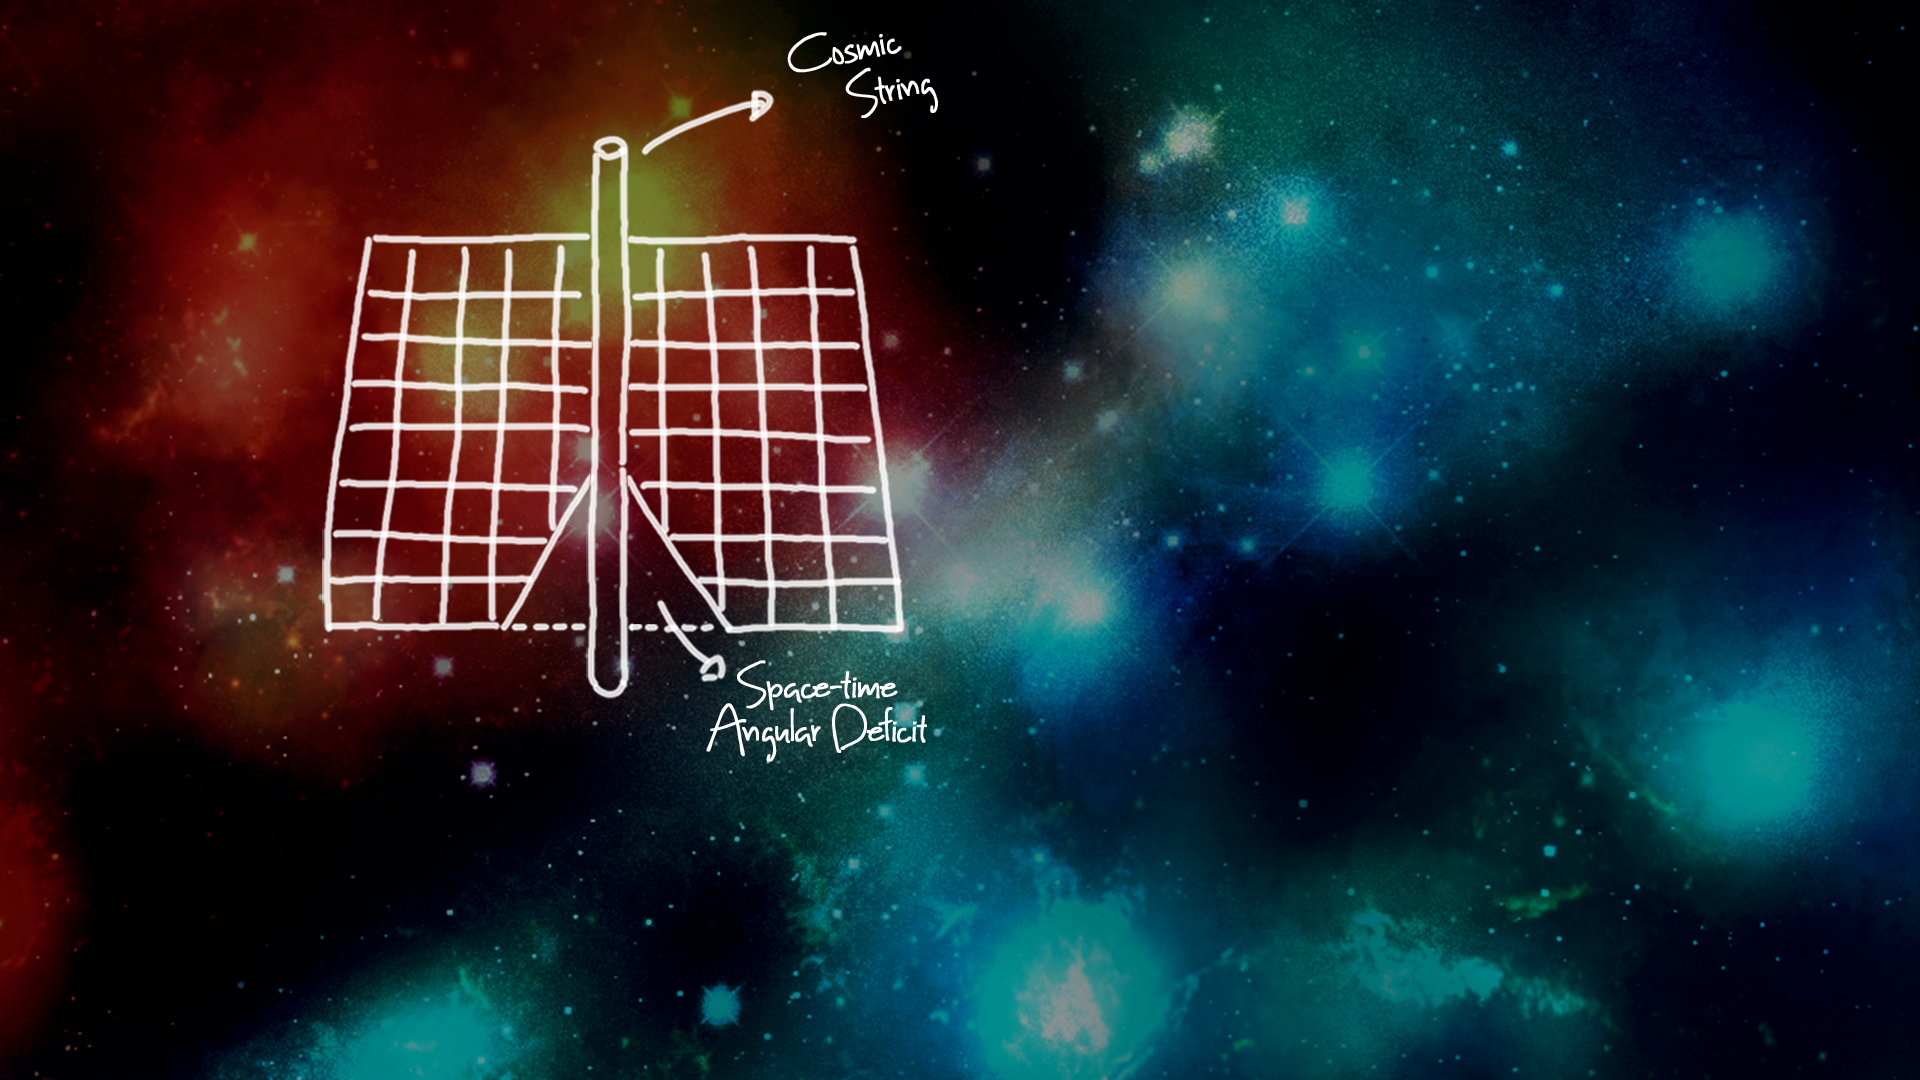 Cosmic
String
Space-time
Angular Deficit